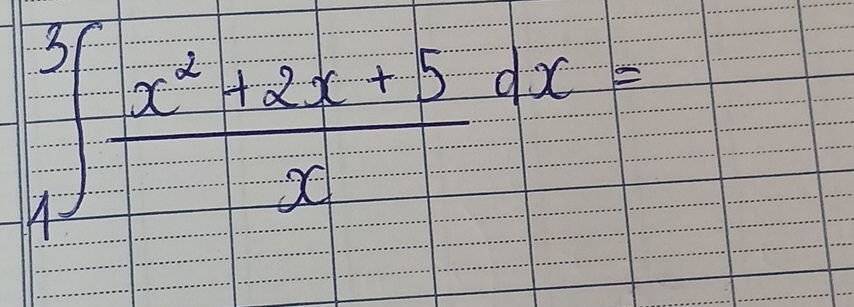 ∫₁³ (x² + 2x + 5)/x dx =